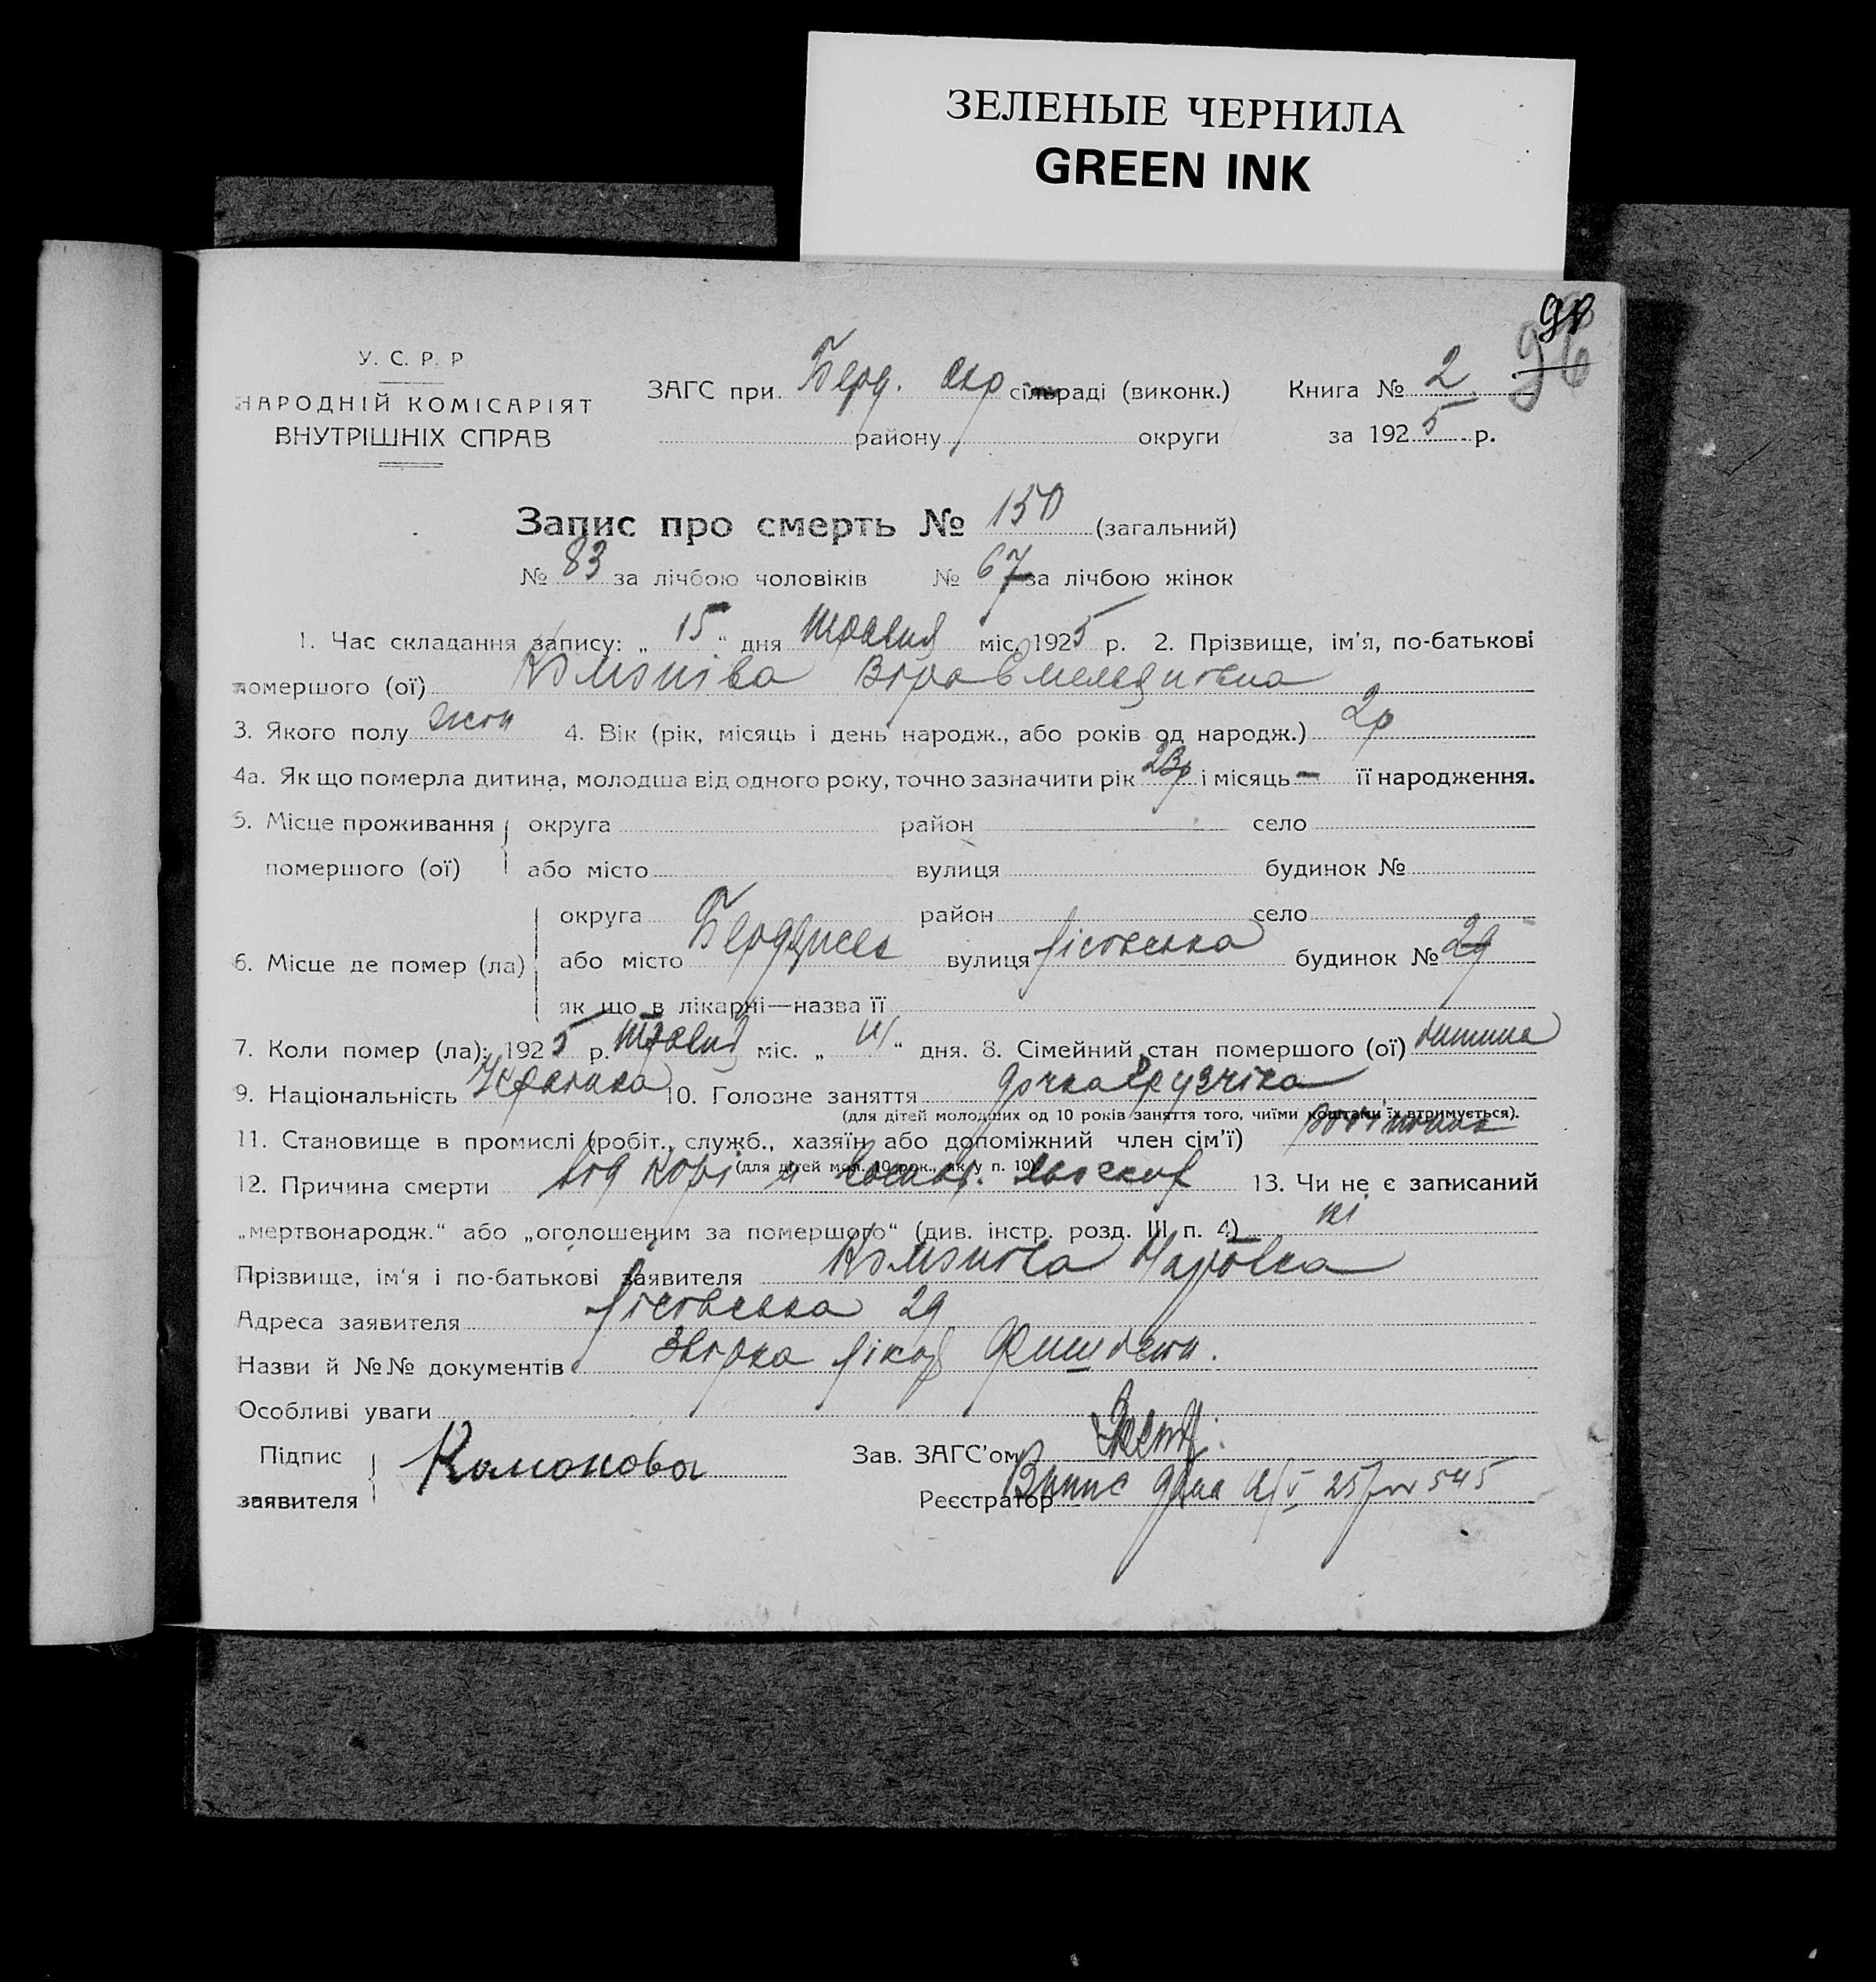 ЗЕЛЕНЫЕ ЧЕРНИЛА
GREEN INK
У. С. Р. Р.
НАРОДНІЙ КОМІСАРІЯТ
ВНУТРІШНІХ СПРАВ
ЗАГС при Берд. окр сільраді (виконк.)
району округи
Книга № 2
за 1925 р.
Запис про смерть № 150 (загальний)
№ 83 за лічбою чоловіків № 67 за лічбою жінок
1. Час складання запису: „ 15 “ дня травня міс. 1925 р. 2. Прізвище, ім'я, по-батькові
помершого (ої) Віра
3. Якого полу жін 4. Вік (рік, місяць і день народж., або років од народж.) 2р
4а. Як що померла дитина, молодша від одного року, точно зазначити рік 23р і місяць — її народження.
5. Місце проживання помершого (ої) округа район село
або місто вулиця будинок №
6. Місце де помер (ла) округа район село
або місто Бердичев вулиця Лісовська будинок № 29
як що в лікарні—назва її
7. Коли помер (ла): 1925 р. травня міс. „ “ дня. 8. Сімейний стан помершого (ої) дитина
9. Національність Українка 10. Головне заняття дочка грузчіка
(для дітей молодших од 10 років заняття того, чиїми коштами їх втримується).
11. Становище в промислі (робіт., служб., хазяїн або допоміжний член сім'ї)
(для дітей мол. 10 рок., як у п. 10)
12. Причина смерти від корі и воспал. легких 13. Чи не є записаний
„мертвонародж.“ або „оголошеним за помершого“ (див. інстр. розд. III п. 4) ні
Прізвище, ім'я і по-батькові заявителя
Адреса заявителя Лісовська 29
Назви й №№ документів лікаря
Особливі уваги
Підпис заявителя Камонова
Зав. ЗАГС'ом
Реєстратор Випис дана 25 № 545